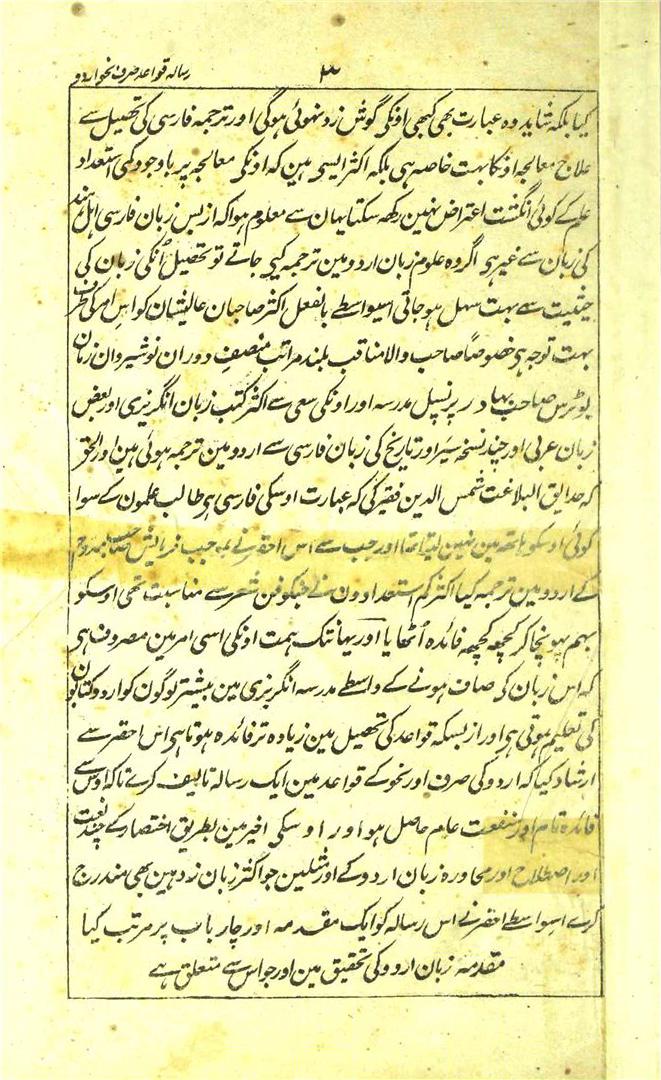 ۳ رسالہ قواعد صرف و نحو اردو
کیا بلکہ شاید وہ عبارت بھی کبھی اونکی گوش زد نہوئی ہوگی اور ترجمہ فارسی کی تحصیل سے
علاج معالجہ اونکا بہت خاصہ ہی بلکہ اکثر ایسی ہین کہ اونکی معالجہ پر باوجود کمی استعداد
علم کے کوئی انگشت اعتراض نہین رکھہ سکتا یہان سے معلوم ہوا کہ از بس زبان فارسی اہل ہند
کی زبان سے غیر ہی اگر وہ علوم زبان اردو مین ترجمہ کیی جاتے تو تحصیل اُنکی زبان کی
حیثیت سے بہت سہل ہو جاتی اسیواسطے بالفعل اکثر صاحبان عالیشان کو اس امر کی طرف
بہت توجہ ہی خصوصًا صاحب والا مناقب بلند مراتب منصف دوران نوشیروان زمان
بوترس صاحب بہادر پرنسپل مدرسہ اور اونکی سعی سے اکثر کتب زبان انگریزی اور بعض
زبان عربی اور چند نسخہ سیر اور تاریخ کی زبان فارسی سے اردو مین ترجمہ ہوئی ہین اور الحق
کہ حدایق البلاغت شمس الدین فقیر کی کہ عبارت اوسکی فارسی ہی طالب علمون کے سوا
کوئی اوسکو ہاتھہ مین نہین لیتا تھا اور جب سے اس احقر نے بموجب فرمایش صاحب ممدوح
کے اردو مین ترجمہ کیا اکثر کم استعدادون نے جنکو فن شعر سے مناسبت تھی اوسکو
بہم پہونچا کر کچھہ کچھہ فائدہ اُٹھایا اور یہانتک ہمت اونکی اسی امر مین مصروف ہی
کہ اس زبان کی صاف ہونے کے واسطے مدرسہ انگریزی مین بیشتر لوگون کو اردو کتابون
کی تعلیم ہوتی ہی اور از بسکہ قواعد کی تحصیل مین زیادہ تر فائدہ ہوتا ہی اس احقر سے
ارشاد کیا کہ اردو کی صرف اور نحو کے قواعد مین ایک رسالہ تالیف کرے تاکہ اوس سے
فائدہ تام اور منفعت عام حاصل ہو اور اوسکی اخیر مین بطریق اختصار کے چند لغت
اور اصطلاح اور محاورہ زبان اردو کے اور مثلین جو اکثر زبان زد ہین بھی مندرج
کرے اسواسطے احقر نے اس رسالہ کو ایک مقدمہ اور چار باب پر مرتب کیا
مقدمہ زبان اردو کی تحقیق مین اور جو اس سے متعلق ہے